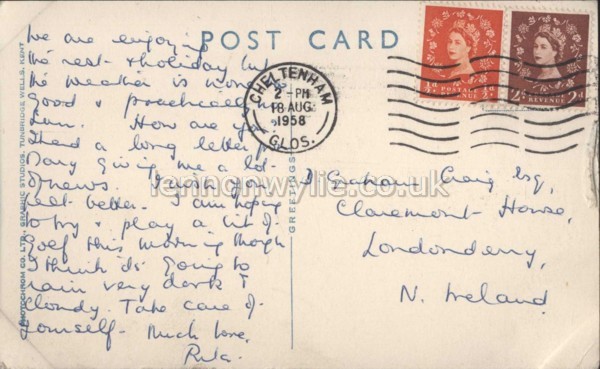 POST CARD
We are enjoying
the rest & holiday but
the weather is
good &
How are you
I had a long letter from
giving me a lot
of news. I
feel better. I am hoping
to try & play a bit of
golf this morning though
I think it's going to
rain very dark &
cloudy. Take care of
yourself. Much love,
Rita.
PHOTOCHROM CO. LTD., GRAPHIC STUDIOS, TUNBRIDGE WELLS, KENT
GREETINGS
CHELTENHAM
2 - PM
18 AUG
1958
GLOS.
½d POSTAGE REVENUE ½d
2d REVENUE 2d
Graham Craig Esq,
Claremont House,
Londonderry,
N. Ireland.
lennonwylie.co.uk